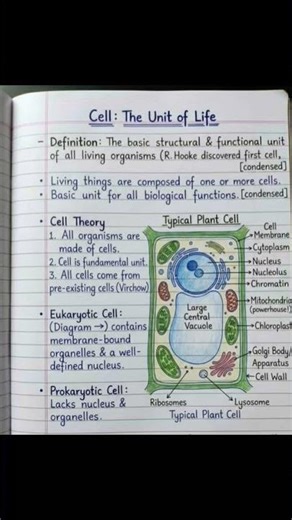 Cell: The Unit of Life
- Definition: The basic structural & functional unit
of all living organisms (R. Hooke discovered first cell,
[condensed]
• Living things are composed of one or more cells.
• Basic unit for all biological functions. [condensed]
• Cell Theory
1. All organisms are
made of cells.
2. Cell is fundamental unit.
3. All cells come from
pre-existing cells (Virchow).
• Eukaryotic Cell:
(Diagram →) contains
membrane-bound
organelles & a well-
defined nucleus.
• Prokaryotic Cell:
Lacks nucleus &
organelles.
Typical Plant Cell
Cell
Membrane
Cytoplasm
Nucleus
Nucleolus
Chromatin
Mitochondria
(powerhouse!)
Chloroplast
Golgi Body/
Apparatus
Cell Wall
Large
Central
Vacuole
Ribosomes
Lysosome
Typical Plant Cell